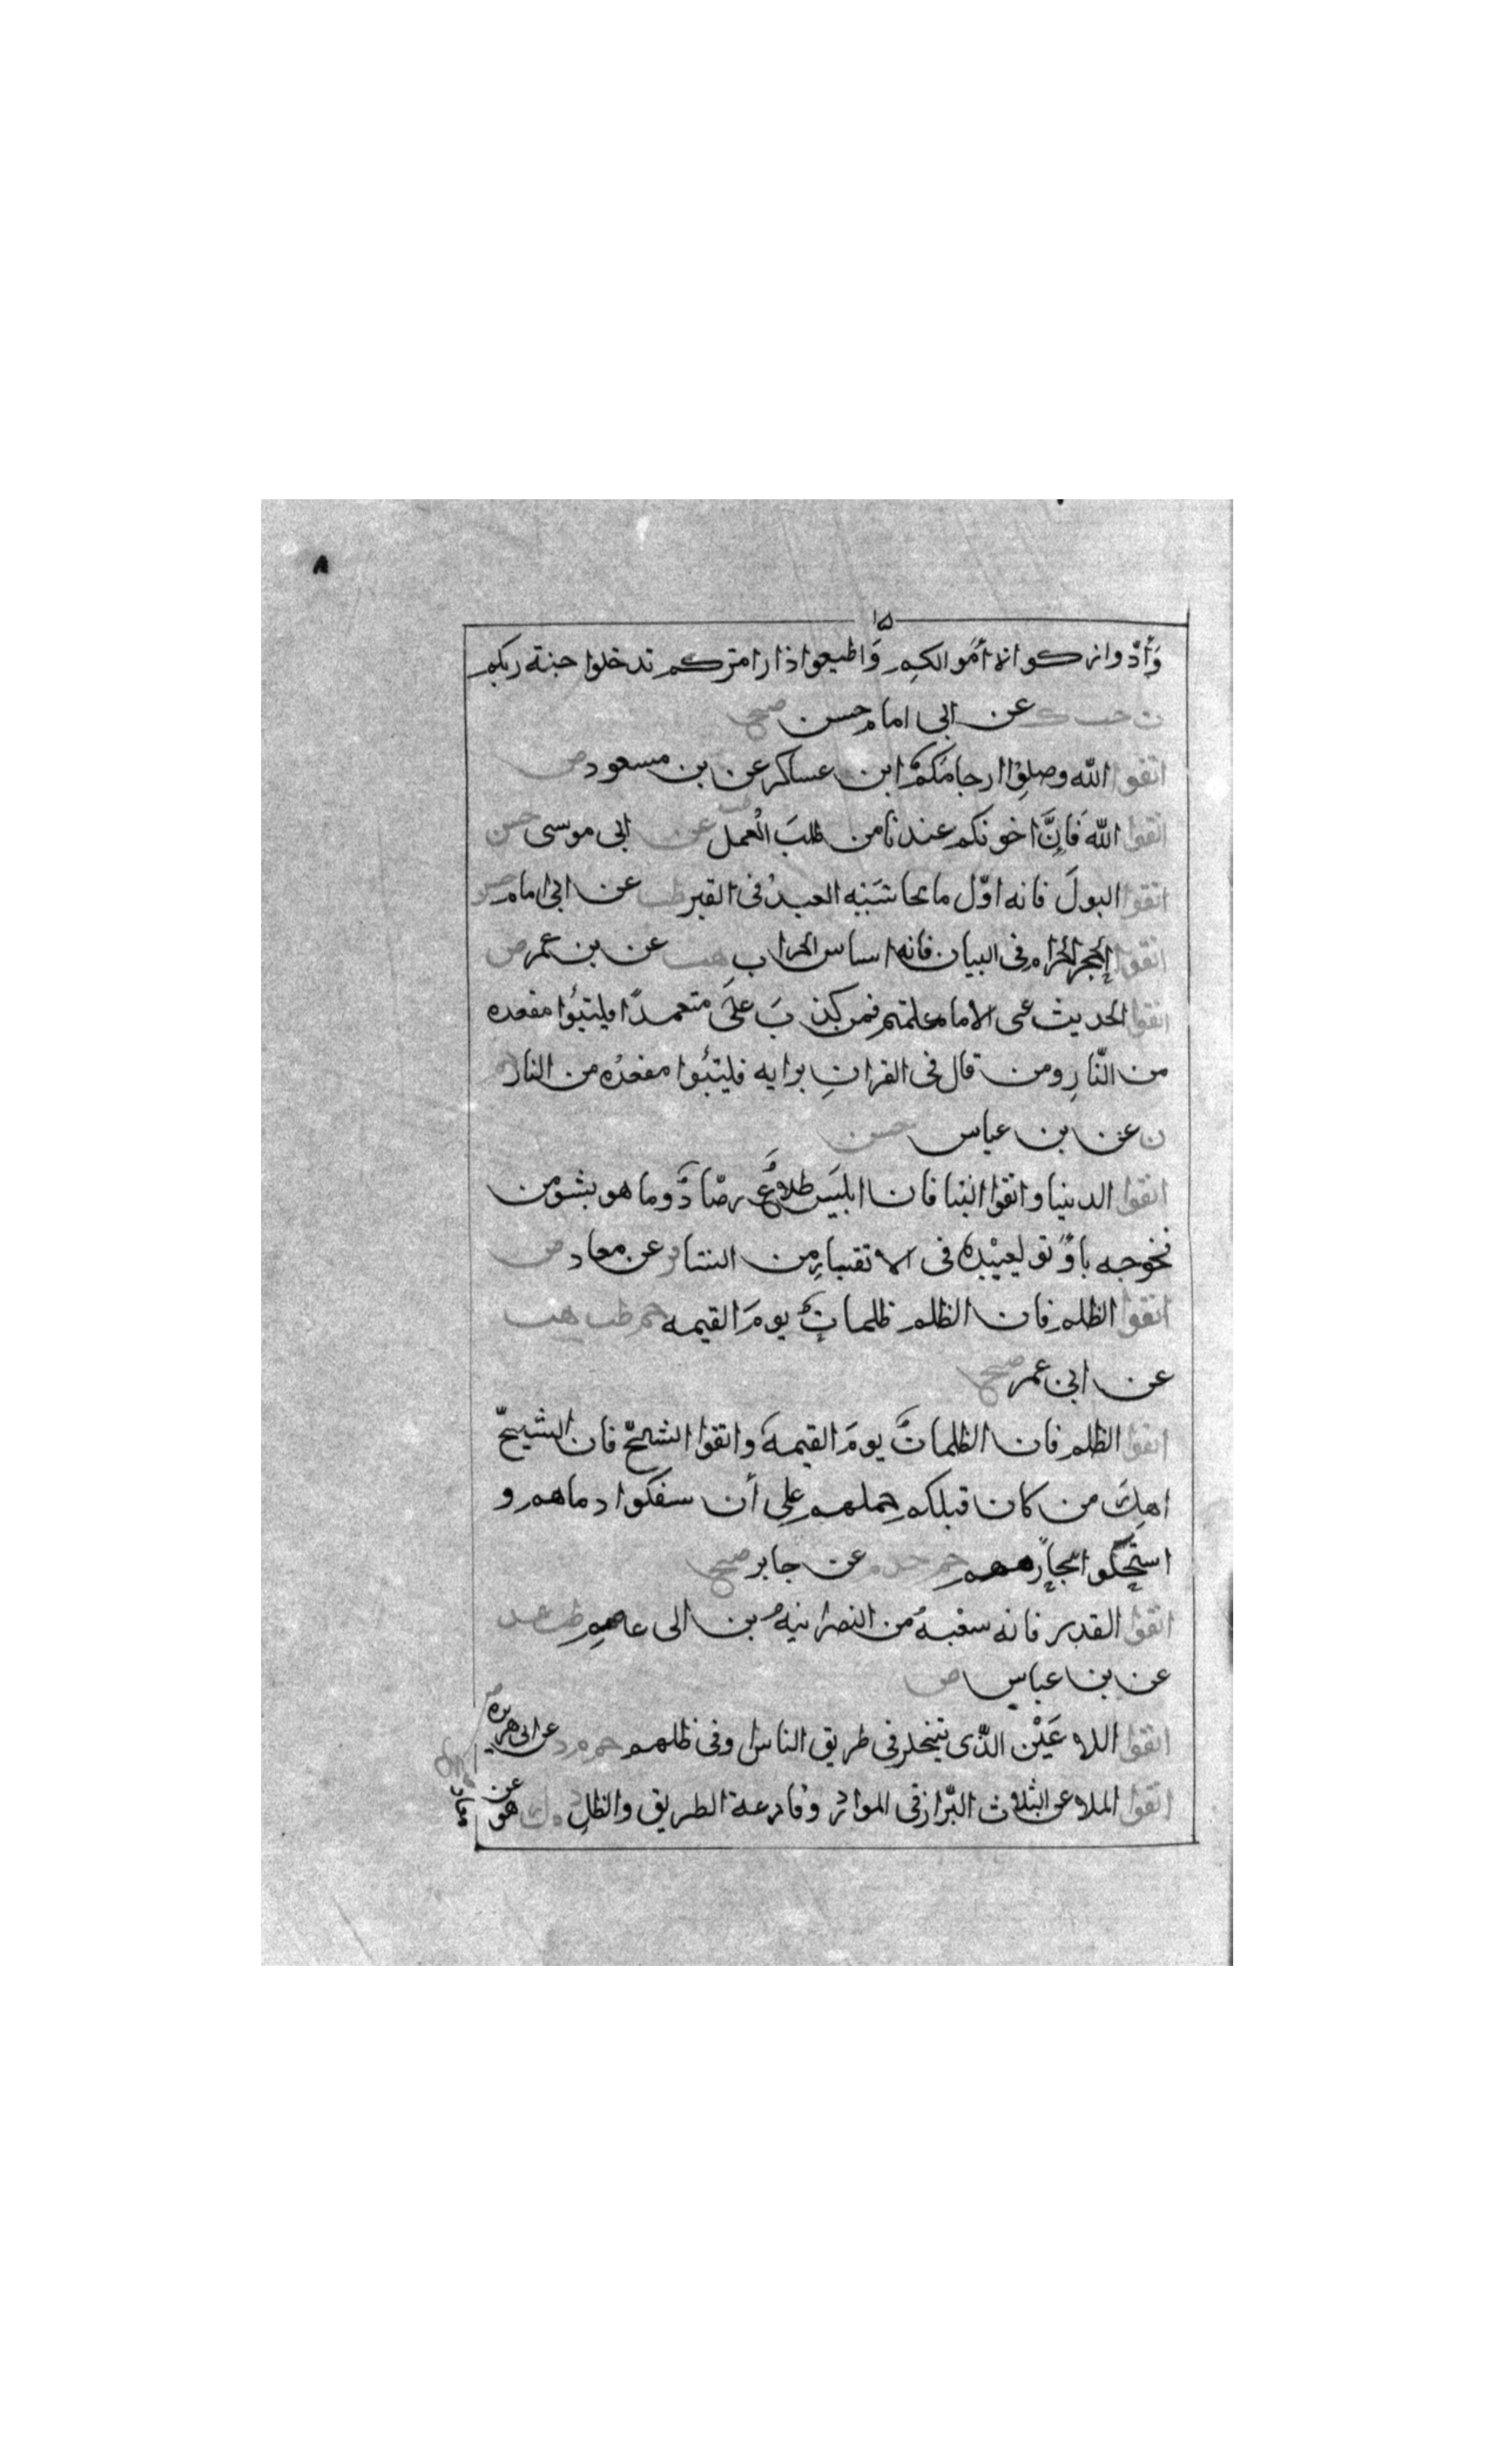 ٨
١٥
وَأدّوا زكواة اأمْوالكِم وَاطيعوا ذا رامتركم تدخلوا جنة ربكم
ت حب ك عن ابى امام حسن صح
اتقوا الله وصلِوْا ارحامَكمْ ابن عساكر عن بن مسعود ض
اتقوا الله فَاِنَّ اخونكم عندنا من طلبَ الْعمل طب عن ابى موسى حسن
اتقوا البولَ فانه اوّل ما يحاسَبْبِه العبدُ فى القبر طب عن ابى امام
اتقوا الحجر الحرام فى البيان فانه اساس الخراب هب عن بن عمر ض
اتقوا الحديث عنى الا ما معلمتم فمن كذبَ عَلَى متعمدًا فليتبؤا مقعده
من النّارِ ومن قال فى القرانِ برايه فليتبُوا مقعدُه من النار
ت عن بن عباس حسن
اتقوا الدينيا واتقوا النِنا فان ابليَس طلاعٌ رصّادٌ وما هو بشئ من
فخوجه باوْثق لعيْبِده فى الاتقياءِ من النساء فر عن معاد ض
اتقوا الظلم فان الظلم ظلماتٌ يومَ القيمه حم طب هب
عن ابن عمر صح
اتقوا الظلم فان الظلماتُ يومَ القيمةَ واتقوا الشحّ فان الشيحّ
اهلِك من كان قبلكم حِملهم علِى أن سفكوا دماهم و
استحِلّوا محارمهم حم خد م عن جابر صح
اتقوا القدر فانه سعبهُ من النصرانيهُ بن ابى عاصمِ طب عد
عن بن عباس ض
اتقوا اللاعَيْن الذّى يتخلى فى طريق الناس وفى ظلهم حم م د عن ابى هريره
اتقوا الملاعن الثلاث البّراز فى الموارد وقارعة الطريق والظل د ه ك هق
عن معاذ